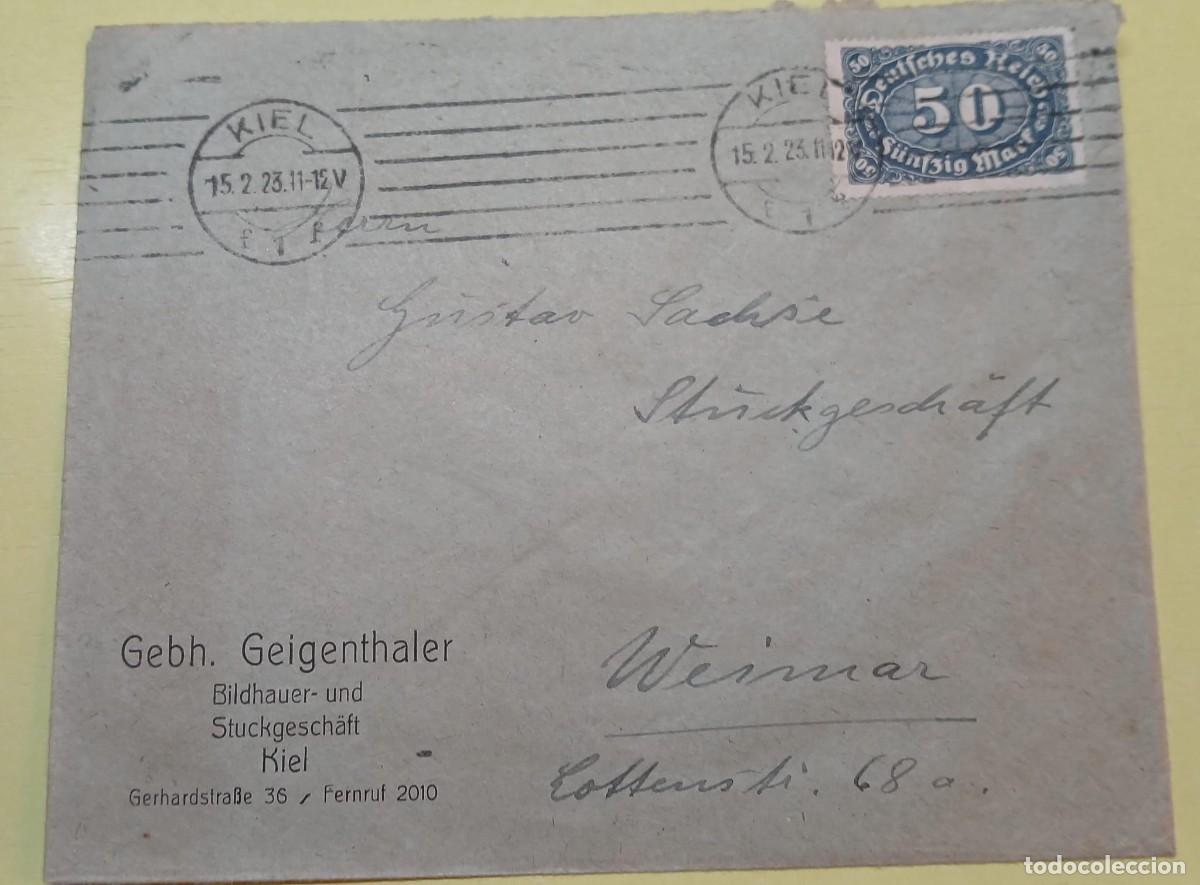 KIEL
15.2.23.11-12V
f 1 f
KIEL
15.2.23.11-12V
f 1 f
50 50
Deutsches Reich
50
Fünfzig Mark
50 50
Herrn
Gustav Sachse
Stuckgeschäft
Weimar
Lottenstr. 68 a.
Gebh. Geigenthaler
Bildhauer- und
Stuckgeschäft
Kiel
Gerhardstraße 36 / Fernruf 2010
todocoleccion